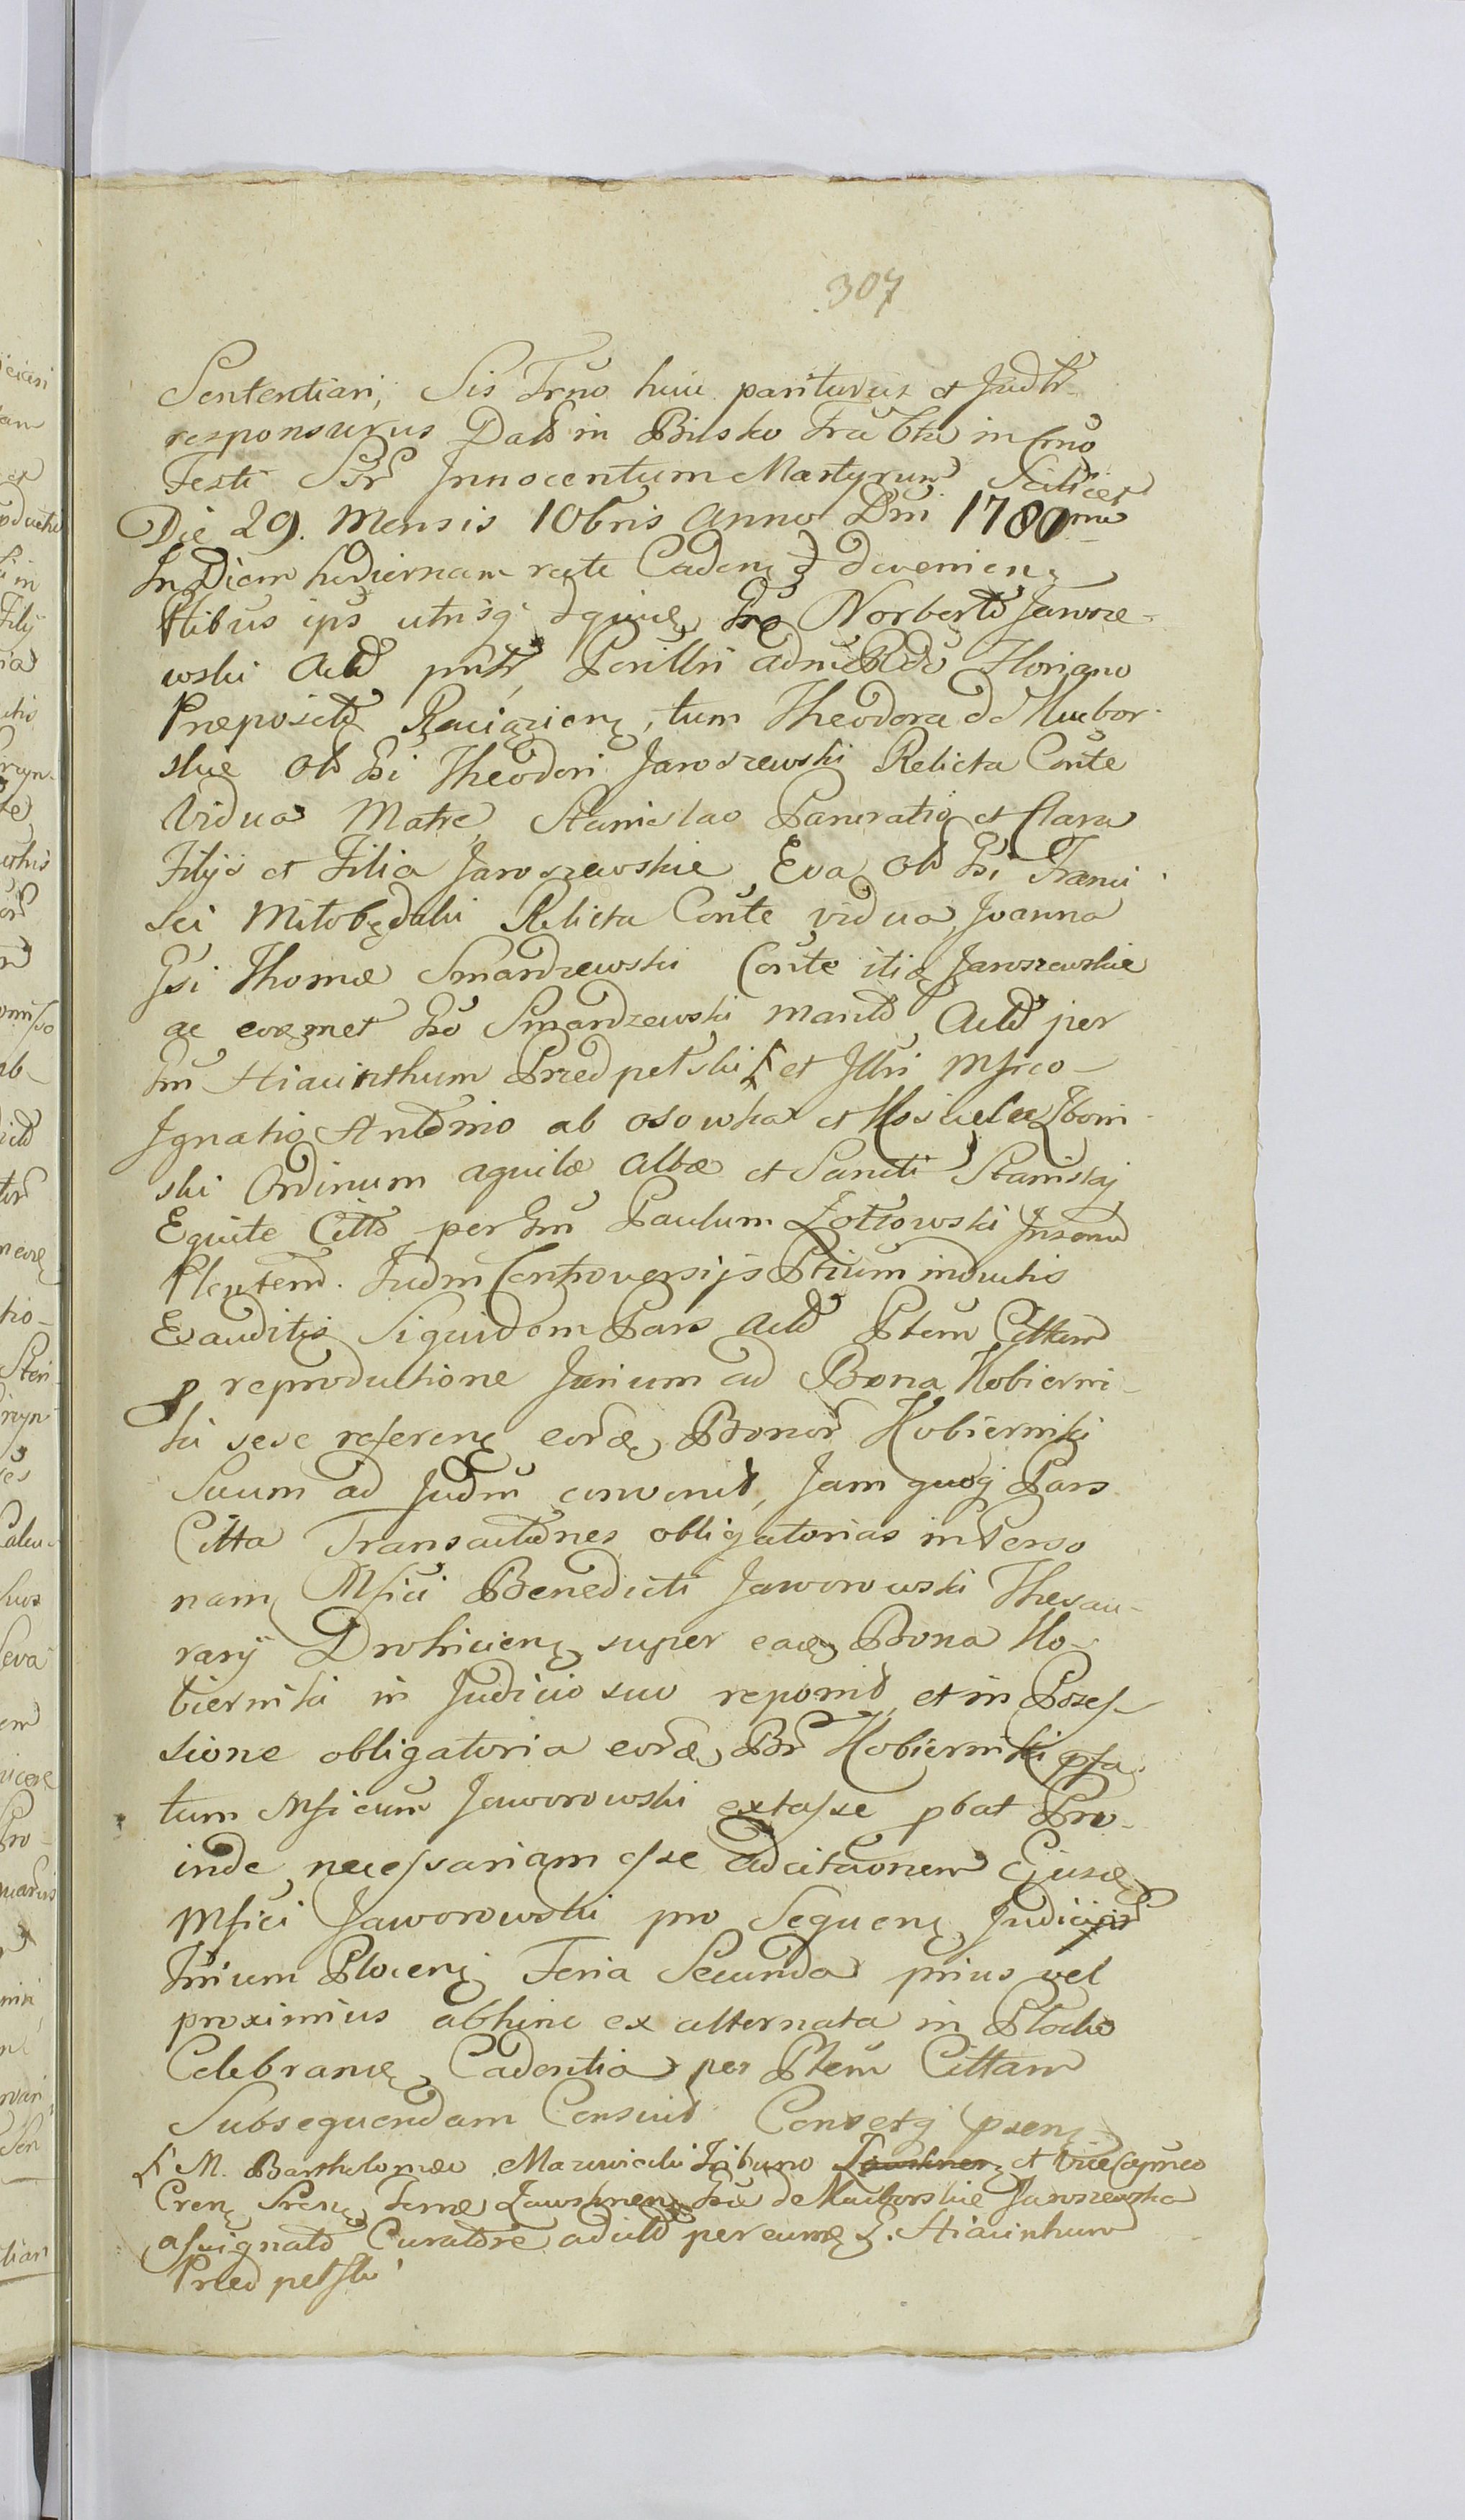 307
Sententiari, Sis Trno huic pariturus et Judlr
responsurus Datt in Bielsko Fra 6ta in Crno
Festi Ssr Innocentum Martyrum Scilicet
Die 29. Mensis 10bris Anno Dni 1780mo
In Diem hodiernam recte Caden et devenien
Ptibus ips utrisq Gso Norberto Jarosze-
wski Actt Perillri admRdo Floriano
Præposito Raciązien, tum Theodora de Mucbor-
skie Olt Gsi Theodori Jaroszewski Relicta Conte
Vidua Matre Stanislao Pancratio et Clara
Filijs et Filia Jaroszewskie Eva Olt Gsi Franci
sci Miłobędzki Relicta Conte vidua, Joanna
Gsi Thomæ Smardzewski Conte itiq Jaroszewskie
ac eorumet Gso Smardzewski marito Actt per
Gm Hiacinthum Przedpełski et Illri Mfico
Ignatio Antonio ab Osowka et Kosiucka Zboin-
ski Ordinum aquilæ Albæ et Sancti Stanislaj
Equite Citto per Gm Paulum Zołtowski
Judm Controversijs Ptium inductis
Exauditis Siquidem Pars Actt Ptem Cittam
p reproductione Jurium ad Bona Kobierni-
ki sese referen eord Bonor Kobierniki
Suum ad Judm convenit, Jam quoq Pars
Citta Transactiones obligatorias in Perso
nam Mfici Benedicti Jaworowski Thesau-
rarij Drohicien super ead Bona Ko-
bierniki in Judicio suo reponit et in Posses-
sione obligatoria eord Br Kobierniki pfa-
tum Mficum Jaworowski extasse pbat Pro-
inde necessariam esse adcitaonem Ejusd
Mfici Jaworowski pro Sequen Judicijs
Trrium Plocen Feria Secunda prius vel
proximius abhinc ex alternata in Plocko
Celebran Cadentia per Ptem Cittam
Subsequendam Censuit Censetq psen
M. Bartholomæo Mazowiecki Tribuno et ViceCapneo
Cren Sren Terræ Zawskrnen Gsæ de Mucborskie Jaroszewska
assignato Curatore adcitt per eumd G. Hiacinthum
Przedpełski